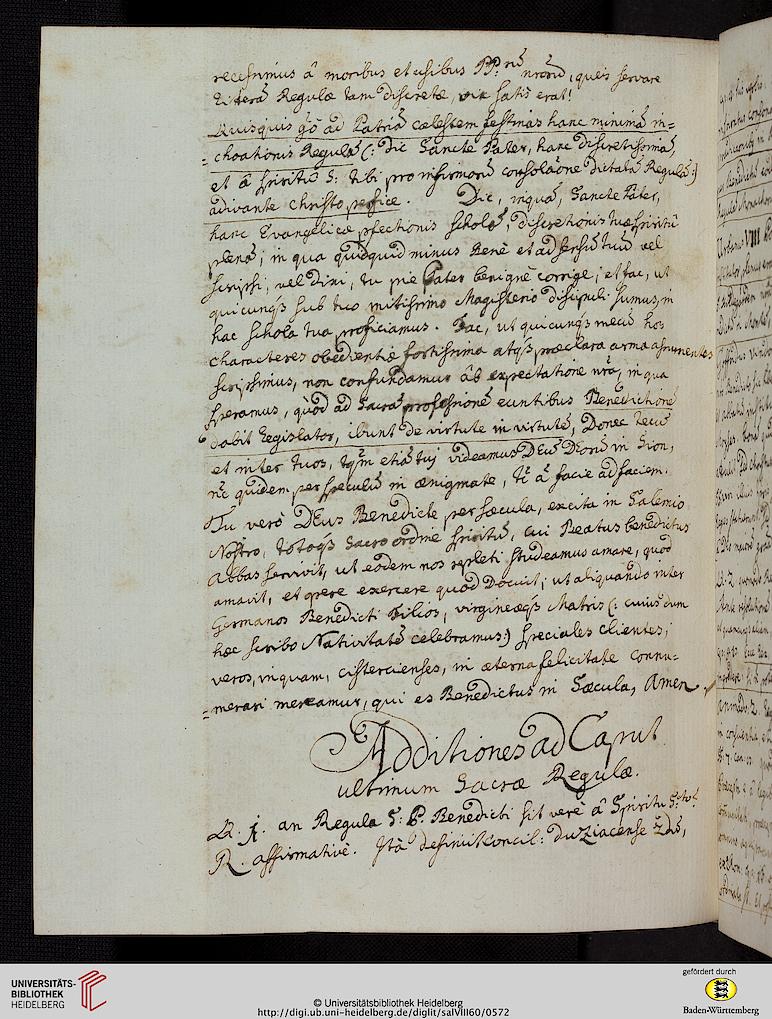 recessimus â moribus et usibus PP.rũ nrorũ, queis servare
literã Regulæ tam discretæ, vix satis erat!
Quisquis gõ ad Patriã cælestem festinas hanc minimã in=
=choationis Regulã (: dic Sancte Pater, hanc discretissimã,
et â spiritu S: tibi pro infirmorũ consolaõne dictatã Regulã:)
adiuvante Christo perfice. Dic, inquã, Sancte Pater,
hanc Evangelicæ pfectionis scholã, discretionis tuæ spiritu
plenã; in qua quidquid minus benè et ad sensũ tuũ vel
scripsi, vel dixi, tu pie Pater benignè corrige; et fac, ut
quicunqs sub tuo mitissimo Magisterio discipuli sumus, in
hac schola tua proficiamus. Fac, ut quicunqs mecũ hos
characteres obedientiæ fortissima atqs præclara arma assumentes
scripsimus, non confundamur âb expectatione nrâ, in qua
speramus, quòd ad Sacrã professionẽ euntibus Benedictionẽ
dabit Legislator, ibunt de virtute in virtutẽ, Donec tecũ
et inter tuos, tqm etiã tuj videamus Deũ Deorũ in Sion,
nc quidem per speculũ in ænigmate, tc â facie ad faciem.
Tu verò DEus Benedicte per sæcula, excita in Salemio
Nostro, totoqs Sacro ordine spiritũ, cui Beatus benedictus
Abbas servivit, ut eodem nos repleti studeamus amare, quod
amavit, et opere exercere quod Docuit; ut aliquando inter
Germanos Benedicti Filios, virgineæqs Matris (: cuius dum
hæc scribo Nativitatẽ celebramus:) speciales clientes;
veros, inquam, cistercienses, in æterna felicitate connu=
=merari mereamur, qui es Benedictus in Sæcula, Amen.
Additiones ad Caput
ultimum Sacræ Regulæ.
Q. 1. an Regula S: P. Benedicti sit verè â Spiritu S:cto?
R. affirmativè. Ità definivit Concil: Duziacense 2dũ,
UNIVERSITÄTS-
BIBLIOTHEK
HEIDELBERG
© Universitätsbibliothek Heidelberg
http://digi.ub.uni-heidelberg.de/diglit/salVIII60/0572
gefördert durch
Baden-Württemberg